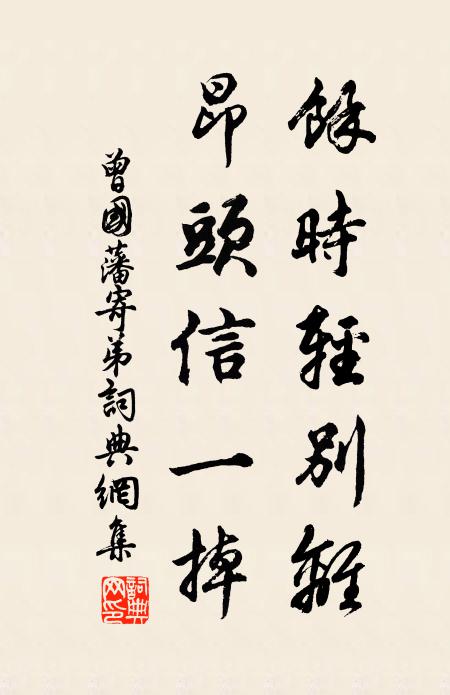 餘時輕別離
昂頭信一掉
曾國藩寄弟詞典網集
詞典網印